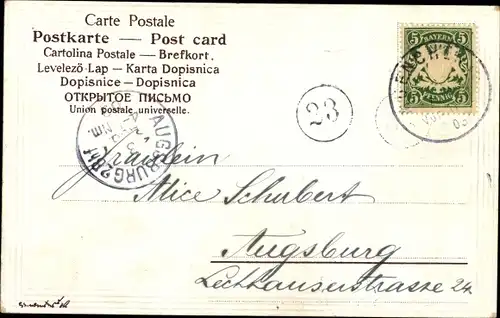 Carte Postale
Postkarte — Post card
Cartolina Postale — Brefkort.
Levelező-Lap — Karta Dopisnica
Dopisnice — Dopisnica
ОТКРЫТОЕ ПИСЬМО
Union postale universelle.
5 BAYERN 5
5 PFENNIG 5
23
AUGSBURG 2 Bhf
Nm.
Fräulein
Alice Schubert
Augsburg
Lechhauserstrasse 24.